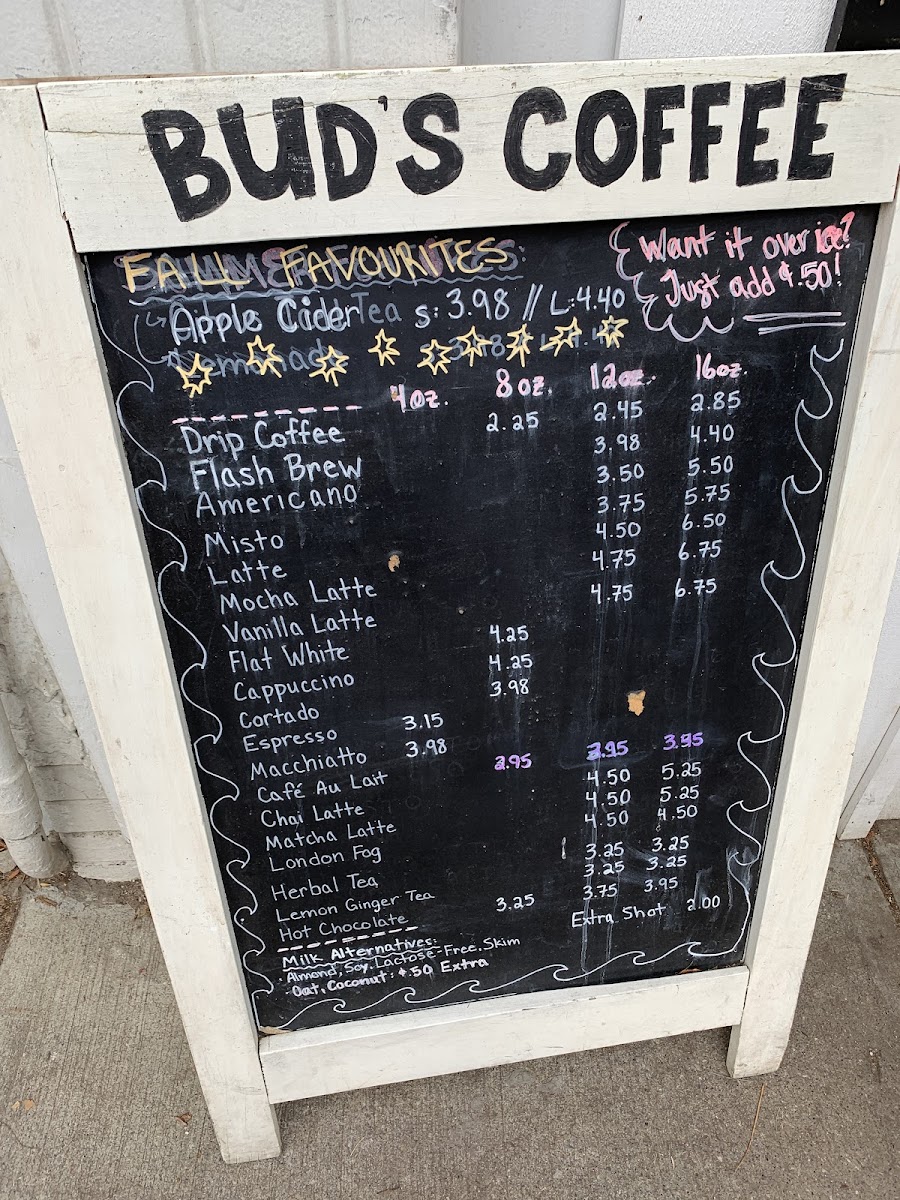 BUD'S COFFEE
FALL FAVOURITES:
Apple Cider S: 3.98 // L: 4.40
Want it over ice?
Just add $.50!
4oz. 8oz. 12oz. 16oz.
Drip Coffee 2.25 2.45 2.85
Flash Brew 3.98 4.40
Americano 3.50 5.50
Misto 3.75 5.75
Latte 4.50 6.50
Mocha Latte 4.75 6.75
Vanilla Latte 4.75 6.75
Flat White 4.25
Cappuccino 4.25
Cortado 3.98
Espresso 3.15
Macchiatto 3.98
Café Au Lait 2.95 3.95
Chai Latte 4.50 5.25
Matcha Latte 4.50 5.25
London Fog 4.50 4.50
Herbal Tea 3.25 3.25
Lemon Ginger Tea 3.25 3.25
Hot Chocolate 3.25 3.75 3.95
Extra Shot 2.00
Milk Alternatives:
Almond, Soy, Lactose-Free, Skim
Oat, Coconut: $.50 Extra